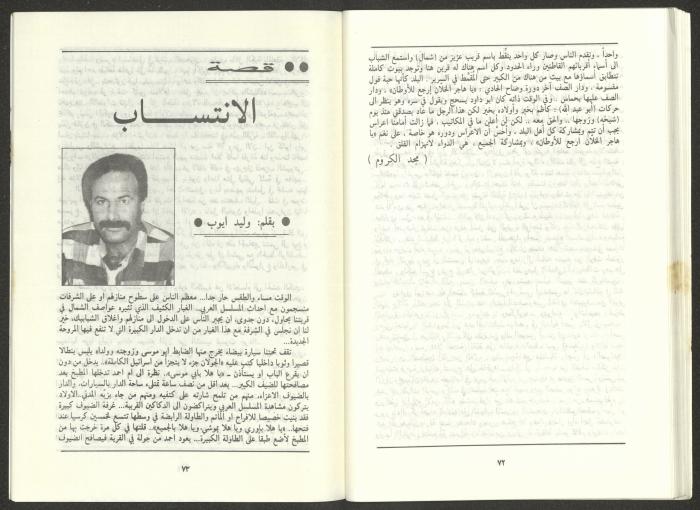 واحداً . وتقدم الناس وصار كل واحد ينقّط باسم قريب عزيز من (شمال) واستمع الشباب
الى أسماء أقربائهم القاطنين وراء الحدود وكل اسم هناك له قرين هنا وتوجد بيوت كاملة
تتطابق أسماؤها مع بيت من هناك من الكبير حتى المقمّط في السرير . البلد كأنها حبة فول
مقسومة . ودار الصف آخر دورة وصاح الحادي : «يا هاجر الخلان إرجع للأوطان» ، ودار
الصف عليها بحماس .. وفي الوقت ذاته كان ابو داود يسحج ويقول في سره وهو ينظر الى
حركات (أبو عبد الله) : كاظم بخير وأولاده بخير لكن هذا الرجل ما عاد يصدقني منذ يوم
(شيخة) وزوجها .. والحق معه .. لكن لن أعلن ما في المكاتيب ، فما زالت أمامنا اعراس
يجب أن تتم وبمشاركة كل أهل البلد . وأحس أن الاعراس ودوره هو خاصة ، على نغم «يا
هاجر الخلان ارجع للأوطان» ، وبمشاركة الجميع ، هي الدواء لانهزام القلق .
( مجد الكروم )
٧٢
قصة
الانتساب
بقلم: وليد ايوب
الوقت مساء والطقس حار جدا... معظم الناس على سطوح منازلهم او على الشرفات
منسجمون مع احداث المسلسل العربي.. الغبار الكثيف الذي تثيره عواصف الشمال في
قريتنا يحاول، دون جدوى، ان يجبر الناس على الدخول الى منازلهم واغلاق الشبابيك، خير
لنا ان نجلس في الشرفة مع هذا الغبار من ان ندخل الدار الكبيرة التي لا تنفع فيها المروحة
الجديدة...
تقف تحتنا سيارة بيضاء يخرج منها الضابط ابو موسى وزوجته وولداه يلبس بنطالا
قصيرا وثوبا داخليا كتب عليه «الجولان جزء لا يتجزأ من اسرائيل الكاملة». يدخل من دون
ان يقرع الباب او يستأذن ـ «يا هلا بابي موسى».. نظرة الى ام احمد تدخلها المطبخ بعد
مصافحتها للضيف الكبير... بعد اقل من نصف ساعة تمتلىء ساحة الدار بالسيارات، والدار
بالضيوف الاعزاء، منهم من تلمح شارته على كتفيه ومنهم من جاء بزيه المدني..الاولاد
يتركون مشاهدة المسلسل العربي ويتراكضون الى الدكاكين القريبة... غرفة الضيوف كبيرة
فقد بنيت خصيصا للافراح او المآتم والطاولة الرابضة في وسطها تتسع لخمسين كرسيا عند
فتحها.. «يا هلا باوري ويا هلا بموشي،ويا هلا بالجميع».. قلتها في كل مرة خرجت بها من
المطبخ لأضع طبقا على الطاولة الكبيرة... يعود احمد من جولة في القرية فيصافح الضيوف
٧٣